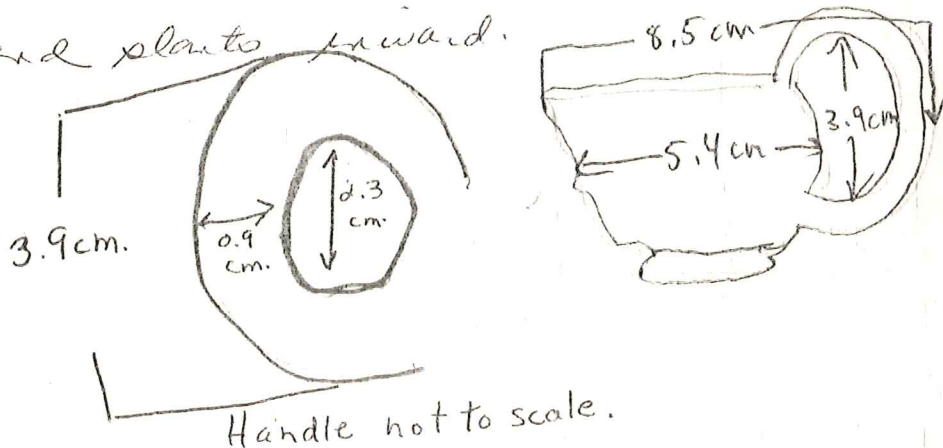 and slants inward.
8.5 cm
3.9cm
5.4 cm
2.3
cm.
0.9
cm.
3.9cm.
Handle not to scale.